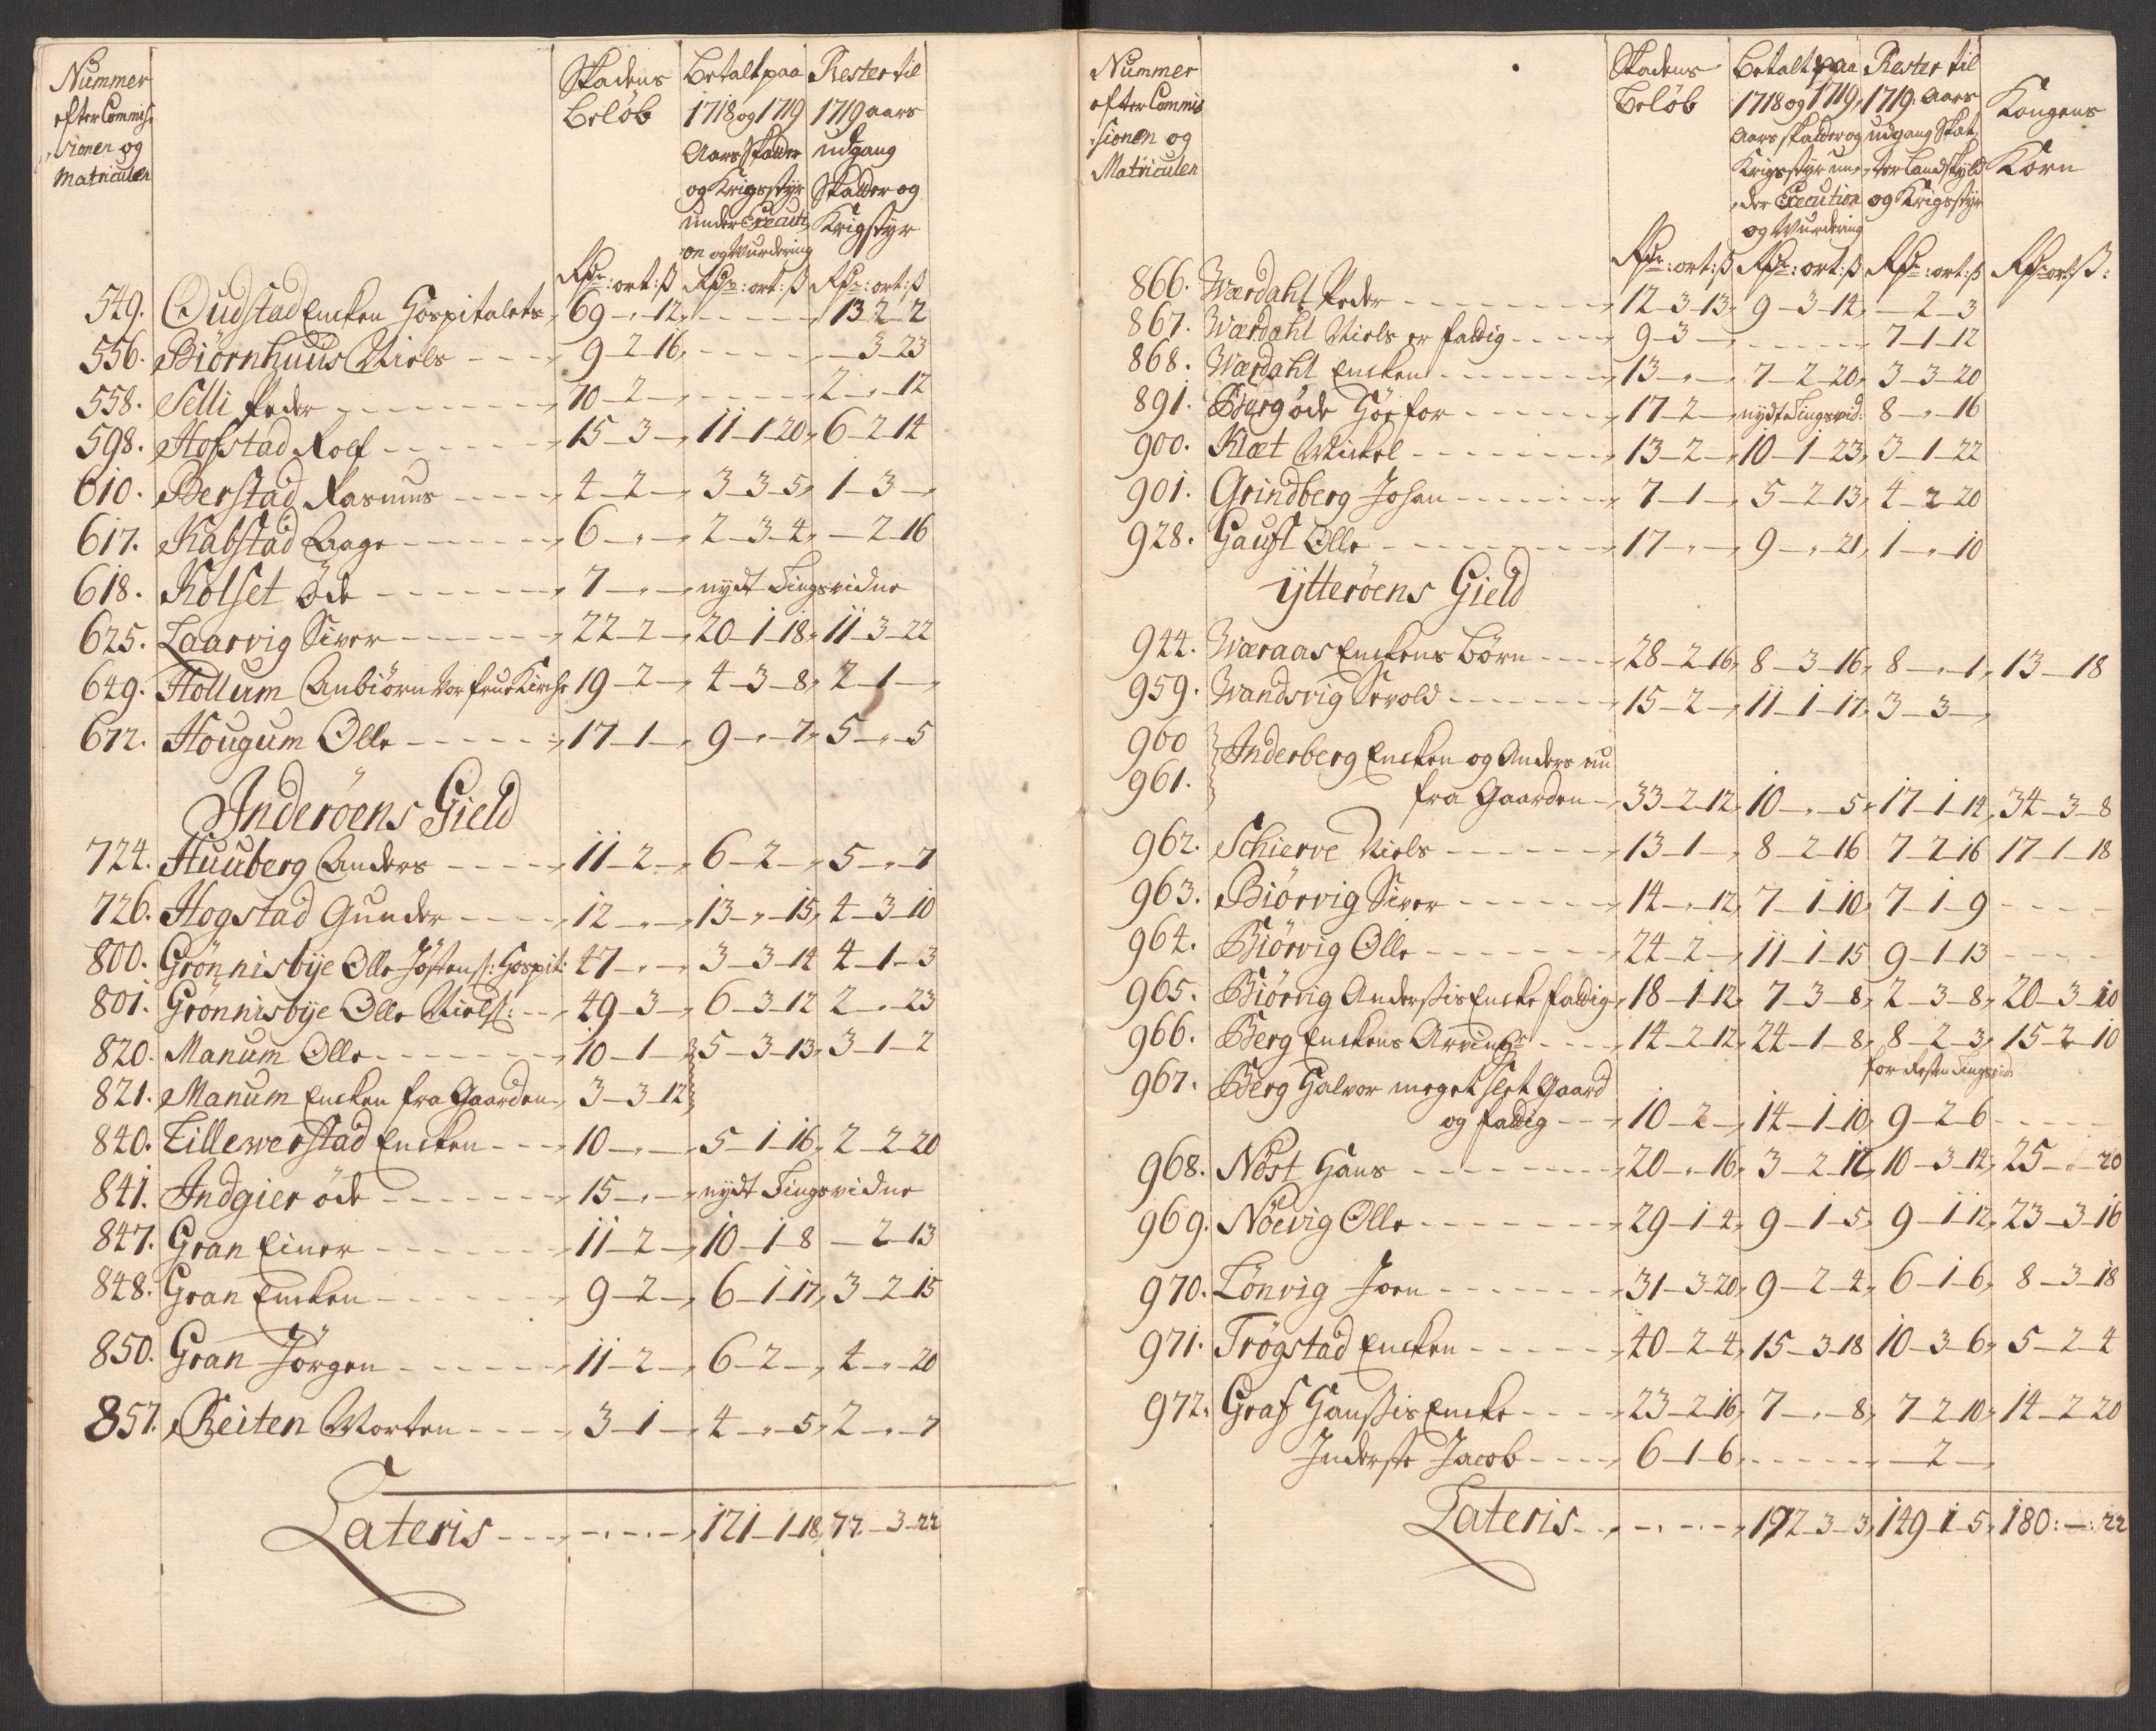 Nummer
efter Commis,
,sionen og
Matriculen
Skadens
Beløb
Betalt paa
1718 og 1719
Aars Skatter
og Krigsstyr
under Executi,
on og Wurdering
Rester til
1719 aars
udgang
Skatter og
Krigstyr
Rdr: ort: ß Rdr: ort: ß Rdr: ort: ß
549. Oudstad Encken Hospitalets 69 - " - 12 - - - 13 2 2
556. Biörnhuus Niels - - - 9 - 2 - 16 - - - - 3 - 23
558. Selli Peder - - - 10 - 2 - - - - 2 - " - 12
598. Hofstad Rolf - - - 15 - 3 - " 11 - 1 - 20 6 - 2 - 14
610. Berstad Rasmus - - - 4 - 2 - " 3 - 3 - 5 1 - 3 - "
617. Kabstad Aage - - - 6 - " - " 2 - 3 - 4 - 2 - 16
618. Kolset öde - - - 7 - " - " nydt Tingsvidne
625. Laarvig Siver - - - 22 - 2 - " 20 - 1 - 18 11 - 3 - 22
649. Hollum Anbiörn Vor frue Kirche 19 - 2 - " 4 - 3 - 8 2 - 1 - "
672. Hougum Olle - - - 17 - 1 - " 9 - " - 7 5 - " - 5
Inderöens Gield
724. Huuberg Anders - - - 11 - 2 - " 6 - 2 - " 5 - " - 7
726. Hogstad Gunder - - - 12 - " - " 13 - " - 15 4 - 3 - 10
800. Grönnisbye Olle Jöstens: Hospit: 47 - " - " 3 - 3 - 14 4 - 1 - 3
801. Grönnisbye Olle Niels: - - 49 - 3 - " 6 - 3 - 12 2 - " - 23
820. Manum Olle - - - 10 - 1 - " 5 - 3 - 13 3 - 1 - 2
821. Manum Encken fra Gaarden 3 - 3 - 12
840. Tillewerstad Encken - - - 10 - " - " 5 - 1 - 16 2 - 2 - 20
841. Indgier öde - - - 15 - " - " nydt Tingsvidne
847. Gran Einer - - - 11 - 2 - " 10 - 1 - 8 - 2 - 13
848. Gran Encken - - - 9 - 2 - " 6 - 1 - 17 3 - 2 - 15
850. Gran Jörgen - - - 11 - 2 - " 6 - 2 - " 4 - " - 20
857. Reiten Morten - - - 3 - 1 - " 4 - " - 5 2 - " - 7
Lateris - - - 121 - 1 - 18 77 - 3 - 22
Nummer
efter Commis
,sionen og
Matriculen
Skadens
Beløb
Betalt paa
1718 og 1719
Aars skatter og
Krigsstyr un,
,der Execution
og Wurdering
Rester til
1719. Aars
udgang Skat,
,ter Landskyld
og Krigsstyr
Kongens
Korn
Rdr: ort: ß Rdr: ort: ß Rdr: ort: ß Rdr ort ß:
866. Wærdahl Peder - - - 12 - 3 - 13 9 - 3 - 14 - 2 - 3
867. Wærdahl Niels er fattig - - - 9 - 3 - - - - 7 - 1 - 12
868. Wærdahl Encken - - - 13 - " - " 7 - 2 - 20 3 - 3 - 20
891. Berg öde Höe for - - - 17 - 2 - " nydt Tingsvid: 8 - " - 16
900. Klæt Mickel - - - 13 - 2 - " 10 - 1 - 23 3 - 1 - 22
901. Grindberg Johan - - - 7 - 1 - " 5 - 2 - 13 4 - 2 20
928. Gaust Olle - - - 17 - " - " 9 - " - 21 1 - " - 10
ÿtteröens Gield
944. Wæraas Enckens Börn - - - 28 - 2 - 16 8 - 3 - 16 8 - " - 1 13 - 18
959. Wandsvig Sevold - - - 15 - 2 - " 11 - 1 - 17 3 - 3 - "
960 Inderberg Encken og Anders nu
961. fra Gaarden - 33 - 2 - 12 10 - " - 5 17 - 1 - 14 34 - 3 - 8
962. Schierve Niels - - - 13 - 1 - " 8 - 2 - 16 7 - 2 - 16 17 - 1 - 18
963. Biörvig Siver - - - 14 - " - 12 7 - 1 - 10 7 - 1 - 9 - - -
964. Biörvig Olle - - - 24 - 2 - " 11 - 1 - 15 9 - 1 - 13 - - -
965. Biörvig Anderßis Encke fattig 18 - 1 - 12 7 - 3 - 8 2 - 3 - 8 20 - 3 - 10
966. Berg Enckens Arvinger - - - 14 - 2 - 12 24 - 1 - 8 8 - 2 - 3 15 - 2 - 10
for Resten Tingsvid:
967. Berg Halvor meget slet Gaard
og fattig - - 10 - 2 - " 14 - 1 - 10 9 - 2 - 6 - - -
968. Nöst Hans - - - 20 - " - 16 3 - 2 - 10 - 3 - 14 25 - 20
969. Nöevig Olle - - - 29 - 1 - 4 9 - 1 - 5 9 - 1 - 12 23 - 3 - 16
970. Tönvig Joen - - - 31 - 3 - 20 9 - 2 - 4 6 - 1 - 6 8 - 3 - 18
971. Trögstad Encken - - - 40 - 2 - 4 15 - 3 - 18 10 - 3 - 6 5 - 2 - 4
972. Graf Hanßis Encke - - - 23 - 2 - 16 7 - " - 8 7 - 2 - 10 14 - 2 - 20
Inderste Jacob - - - 6 - 1 - 6 - - - - 2 - "
Lateris - - - 192 - 3 - 3 149 - 1 - 5 180: - : 22